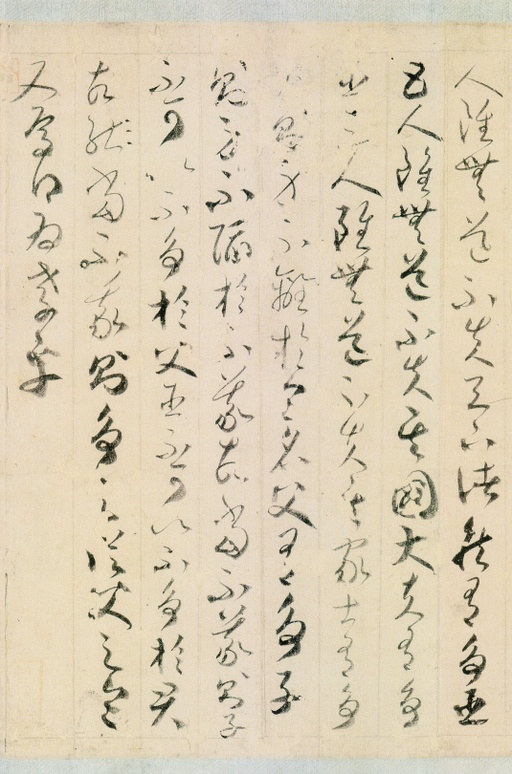 人雖無道不失天下諸侯有争臣
五人雖無道不失其國大夫有争
臣三人雖無道不失其家士有争
友則身不離於令名父有争子
則身不陷於不義故當不義則子
不可以不争於父臣不可以不争於君
故當不義則争之從父之令
又焉得為孝乎